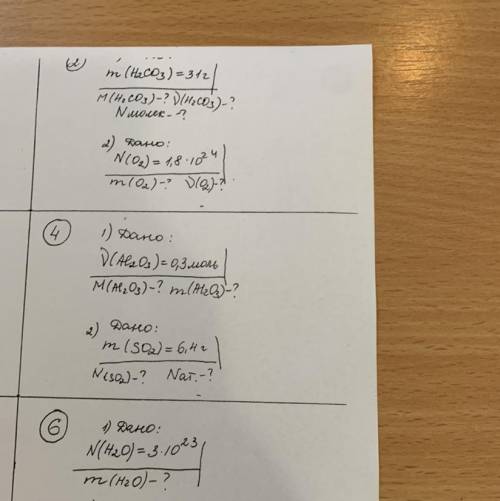 2
m(H₂CO₃)=31г
M(H₂CO₃)-? ν(H₂CO₃)-?
Nмолек-?
2) Дано:
N(O₂)=1,8·10²⁴
m(O₂)-? ν(O₂)-?
4
1) Дано:
ν(Al₂O₃)=0,3моль
M(Al₂O₃)-? m(Al₂O₃)-?
2) Дано:
m(SO₂)=6,4г
N(SO₂)-? Nат.-?
6
1) Дано:
N(H₂O)=3·10²³
m(H₂O)-?